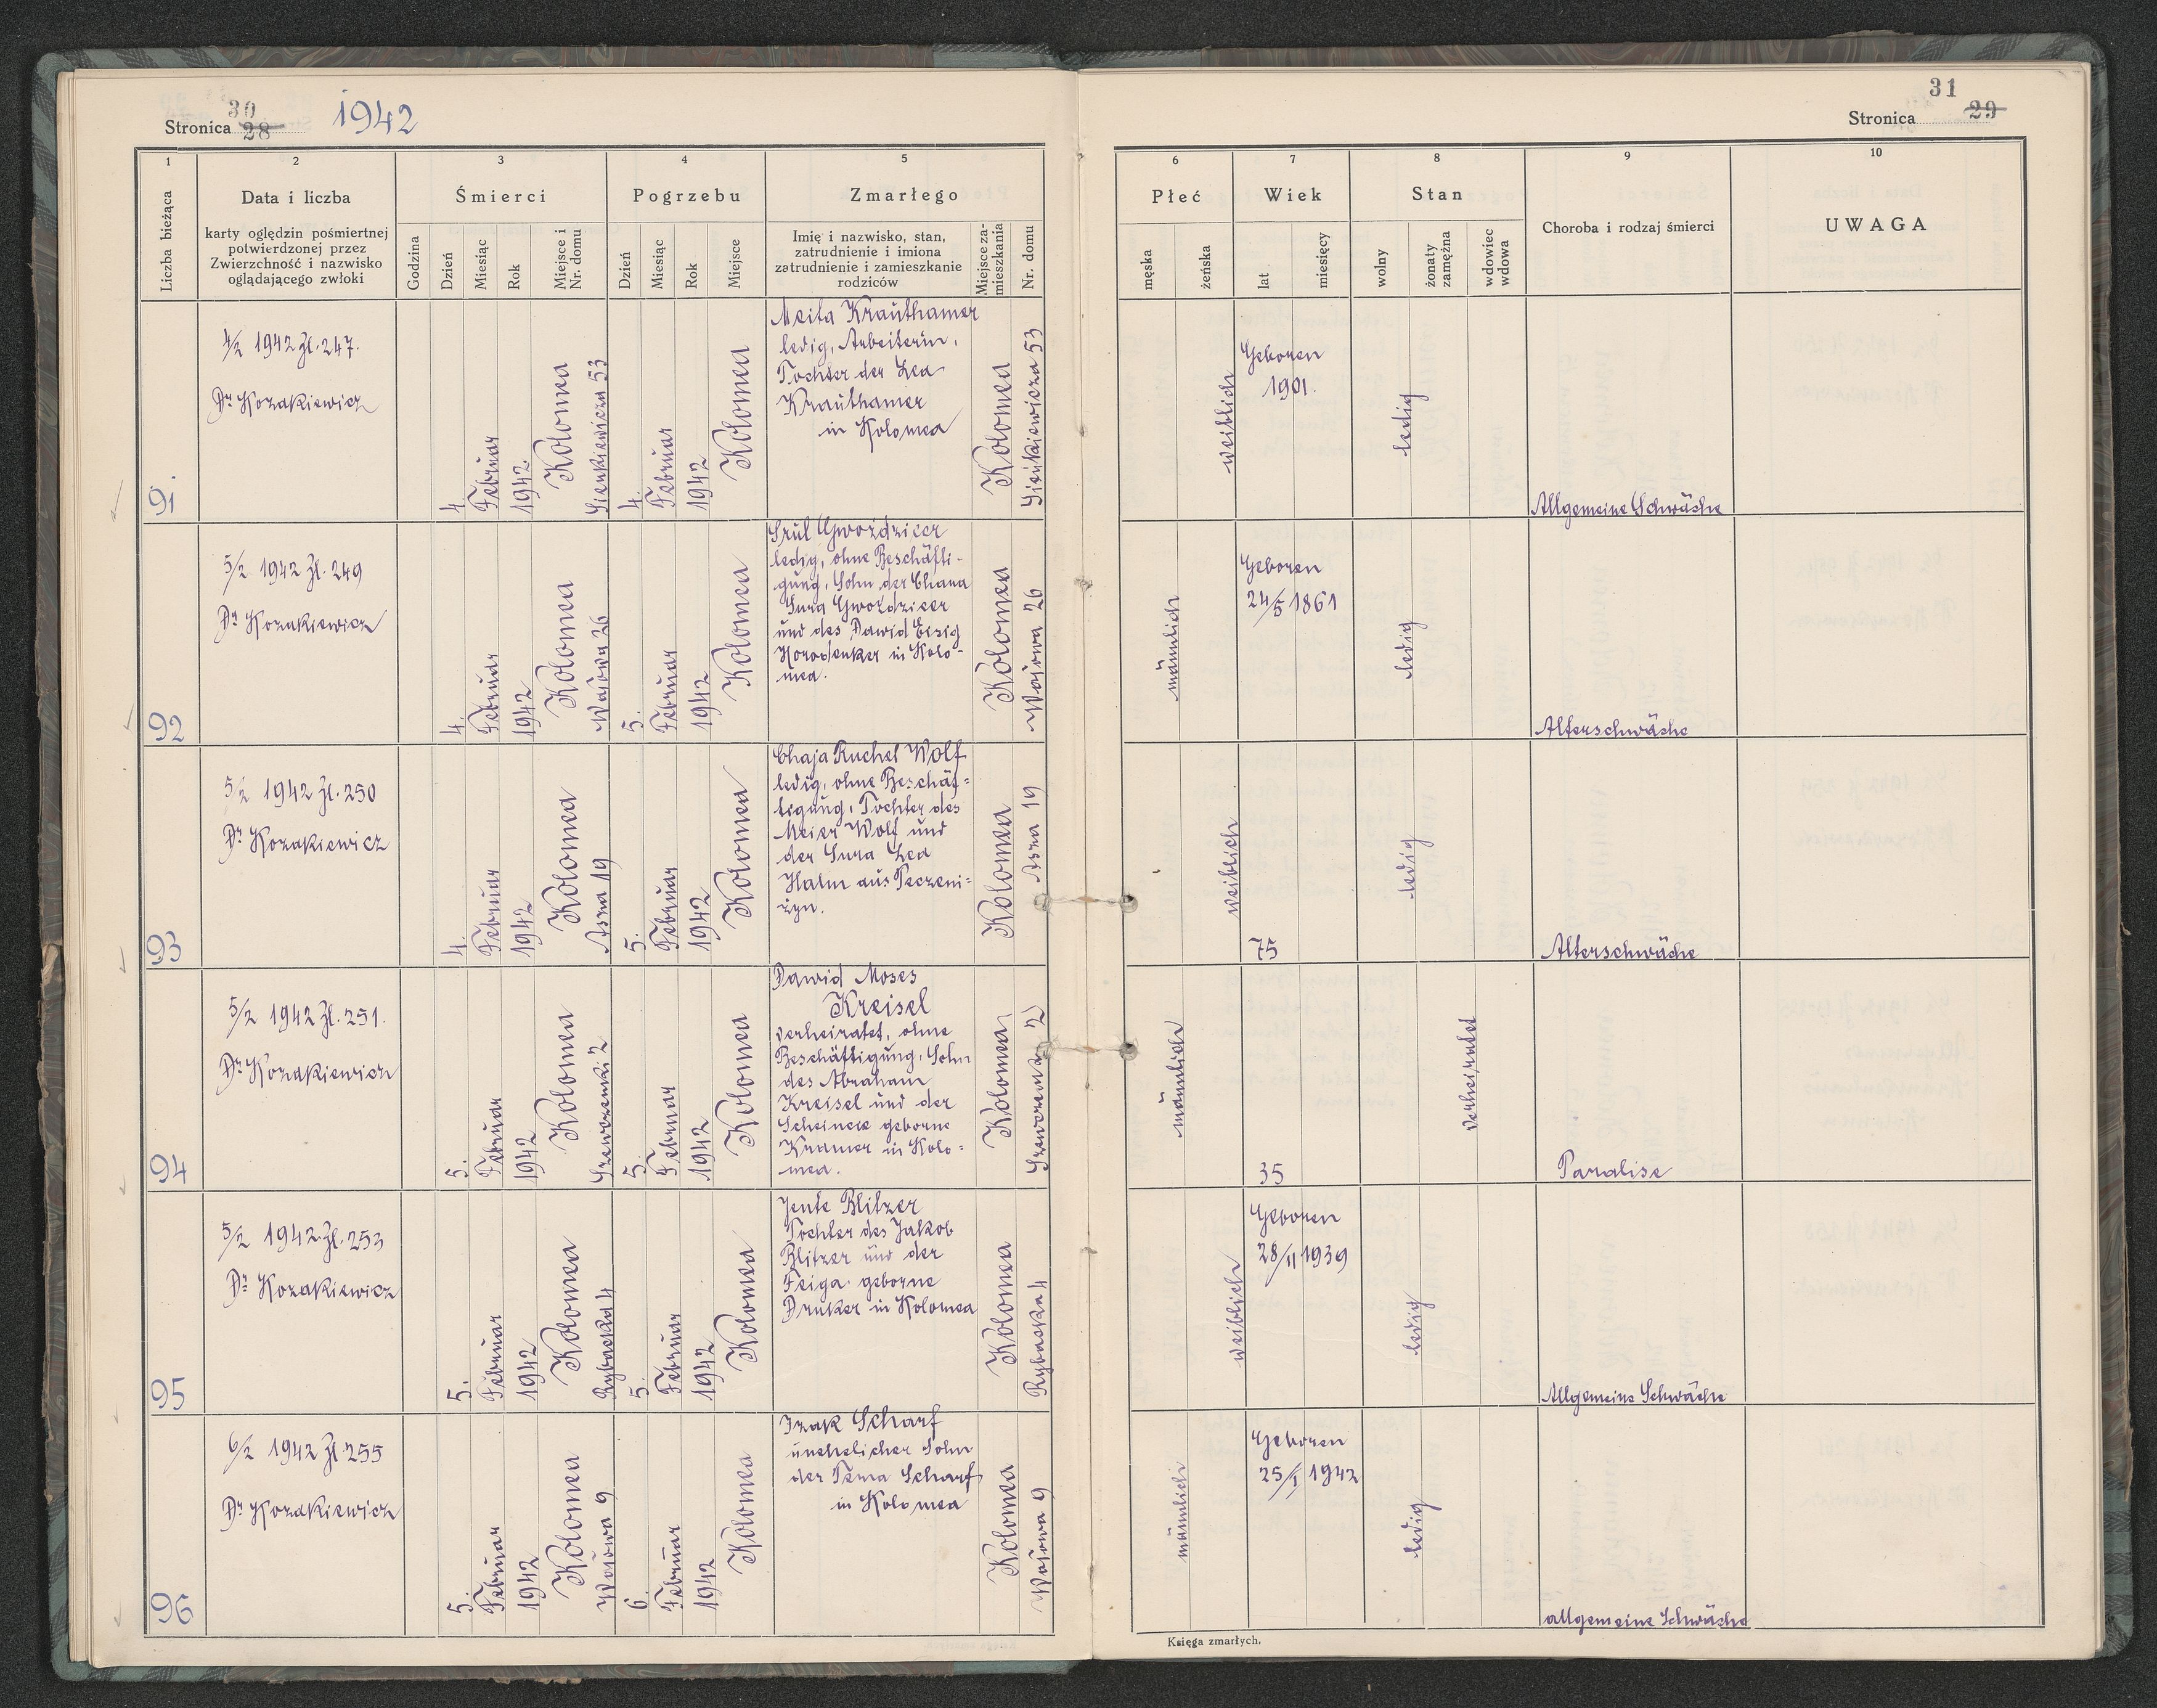 30
Stronica 28
1942
1
2
3
4
5
Liczba bieżąca
Data i liczba
karty oględzin pośmiertnej
potwierdzonej przez
Zwierzchność i nazwisko
oglądającego zwłoki
Śmierci
Godzina
Dzień
Miesiąc
Rok
Miejsce i
Nr. domu
Pogrzebu
Dzień
Miesiąc
Rok
Miejsce
Zmarłego
Imię i nazwisko, stan,
zatrudnienie i imiona
zatrudnienie i zamieszkanie
rodziców
Miejsce za-
mieszkania
Nr. domu
91
4/2 1942 Zl. 247.
Dr Kozakiewicz
4.
Februar
1942.
Kolomea
Sienkiewicza 53
4.
Februar
1942
Kolomea
Meita Krauthamer
ledig, Arbeiterin,
Tochter der Lea
Krauthamer
in Kolomea
Kolomea
Sienkiewicza 53
92
5/2 1942 Zl. 249
Dr Kozakiewicz
4.
Februar
1942
Kolomea
Wałowa 26
5.
Februar
1942
Kolomea
Srul Gwoździcer
ledig, ohne Beschäfti-
gung, Sohn der Chana
Sura Gwoździcer
und des Dawid Eisig
Horodenker in Kolo-
mea.
Kolomea
Wałowa 26
93
5/2 1942 Zl. 250
Dr Kozakiewicz
4.
Februar
1942
Kolomea
Asna 19
5.
Februar
1942
Kolomea
Chaja Ruchel Wolf
ledig, ohne Beschäf=
tigung, Tochter des
Meier Wolf und
der Sura Lea
Halm aus Peczeni=
żyn.
Kolomea
Asna 19
94
5/2 1942 Zl. 251.
Dr Kozakiewicz
5.
Februar
1942
Kolomea
Szewczenki 2
5.
Februar
1942
Kolomea
Dawid Moses
Kreisel
verheiratet, ohne
Beschäftigung, Sohn
des Abraham
Kreisel und der
geborne
Kramer in Kolo=
mea.
Kolomea
Szewczenki 2
95
5/2 1942 Zl. 253
Dr Kozakiewicz
5.
Februar
1942
Kolomea
Rybacka 4
5.
Februar
1942
Kolomea
Jente Blitzer
Tochter des Jakob
Blitzer und der
Feiga geborne
Druker in Kolomea
Kolomea
Rybaska 4
96
6/2 1942 Zl. 255
Dr Kozakiewicz
5.
Februar
1942
Kolomea
Wałowa 9
6.
Februar
1942
Kolomea
Izak Scharf
unehelicher Sohn
der Tema Scharf
in Kolomea
Kolomea
Wałowa 9
31
Stronica 29
6
7
8
9
10
Płeć
męska
żeńska
Wiek
lat
miesięcy
Stan
wolny
żonaty
zamężna
wdowiec
wdowa
Choroba i rodzaj śmierci
UWAGA
weiblich
Geboren
1901.
ledig
Allgemeine Schwäche
männlich
Geboren
24/5 1861
ledig
Alterschwäche
weiblich
75
ledig
Alterschwäche
männlich
35
verheiratet
Paralise
weiblich
Geboren
28/II 1939
ledig
Allgemeine Schwäche
männlich
Geboren
25/I 1942
ledig
allgemeine Schwäche
Księga zmarłych.